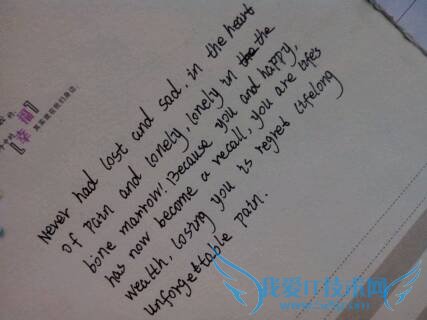 Never had lost and sad. in the heart
of pain and lonely, lonely in the the
bone marrow! Because you and happy,
has now become a recall, you are life's
wealth, losing you is regret lifelong
unforgettable pain.
『幸 福』
我爱IT技术网